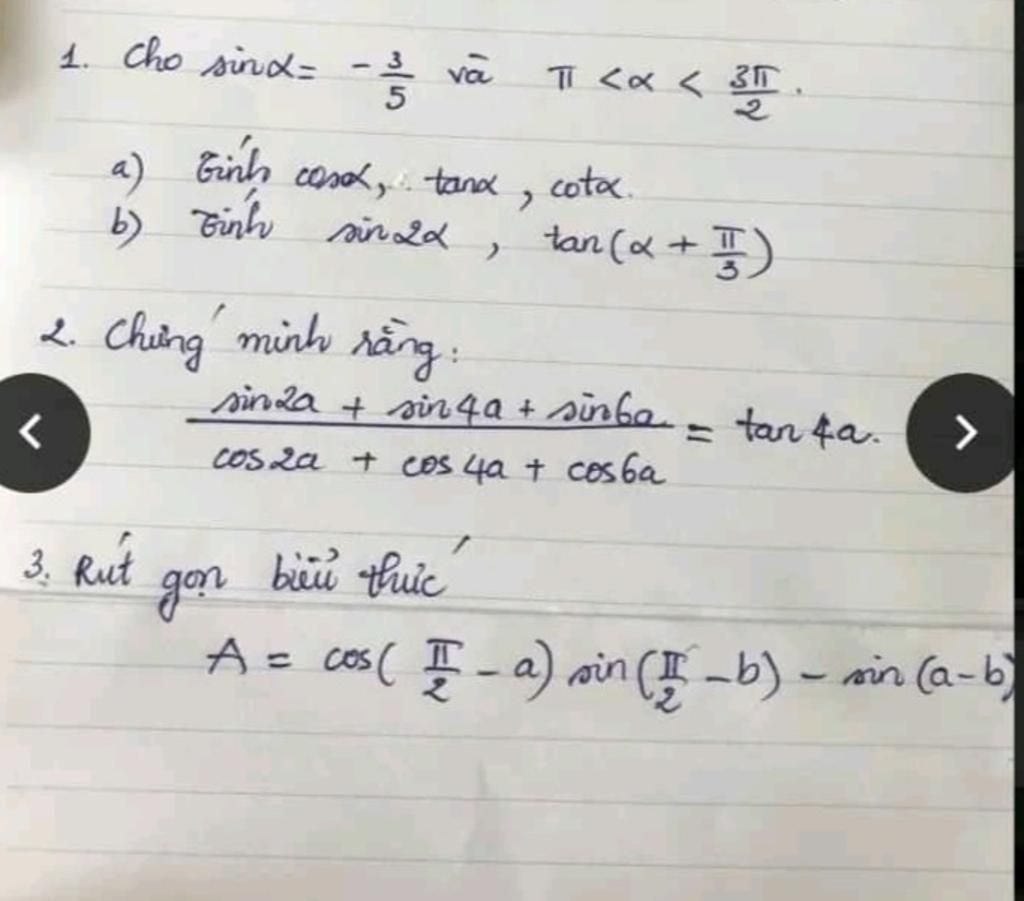 1. Cho sinα = -3/5 và π < α < 3π/2.
a) Tính cosα, tanα, cotα.
b) Tính sin2α, tan(α + π/3)
2. Chứng minh rằng:
(sin2a + sin4a + sin6a)/(cos2a + cos4a + cos6a) = tan4a.
3. Rút gọn biểu thức
A = cos(π/2 - a) sin(π/2 - b) - sin(a-b)